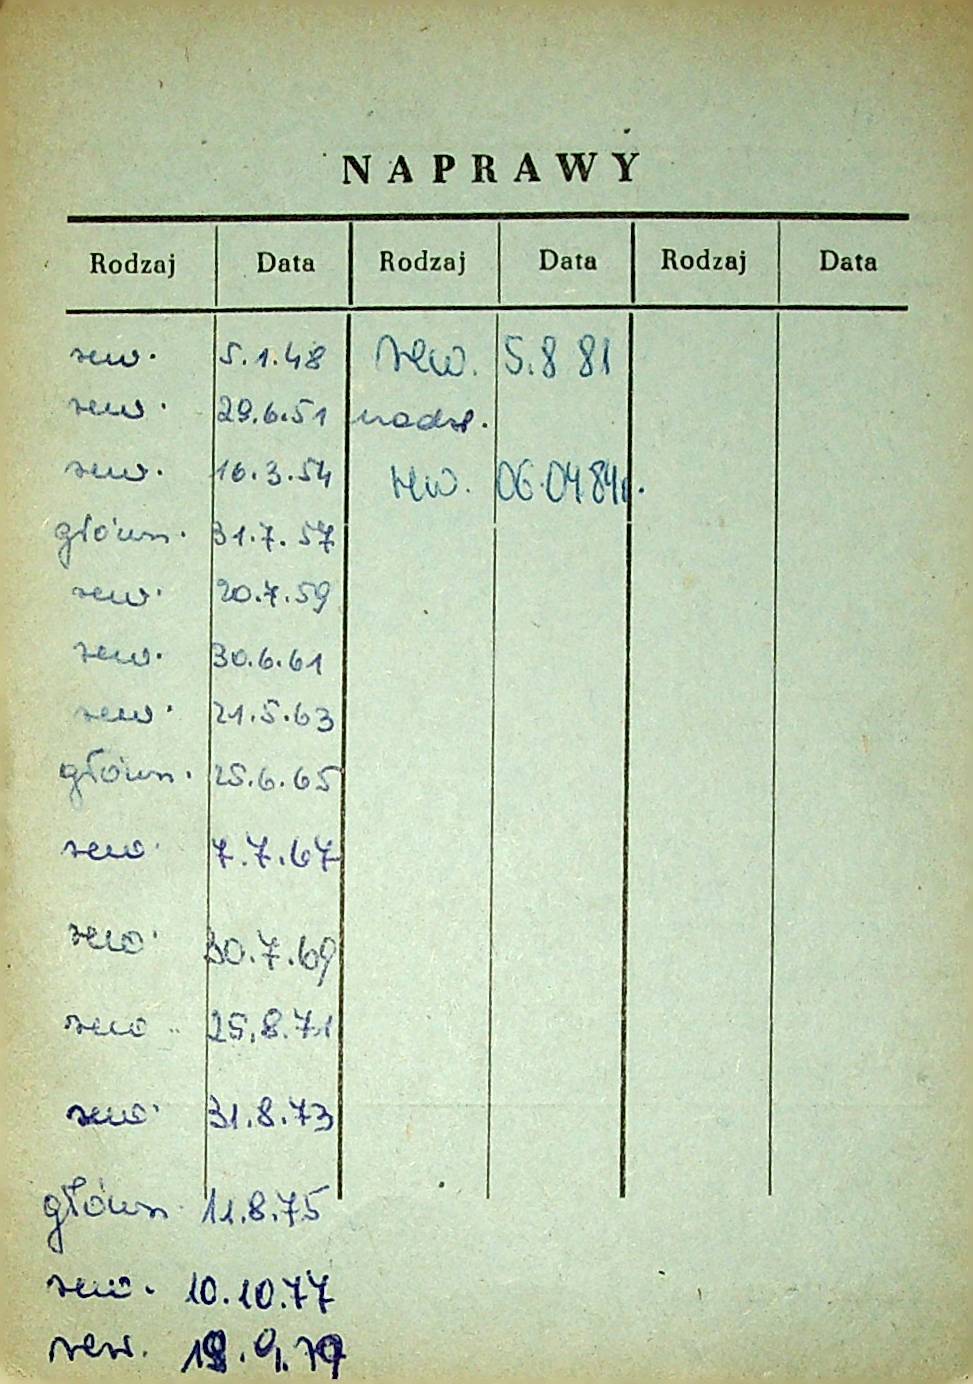 NAPRAWY
Rodzaj Data Rodzaj Data Rodzaj Data
rew. 5.1.48
rew. 29.6.51
rew. 16.3.54
główn. 31.7.57
rew. 20.7.59
rew. 30.6.61
rew. 21.5.63
główn. 25.6.65
rew. 7.7.67
rew. 30.7.69
rew. 25.8.71
rew. 31.8.73
główn. 11.8.75
rew. 10.10.77
rew.
rew. 5.8 81
nadz.
rew. 06.04 84r.